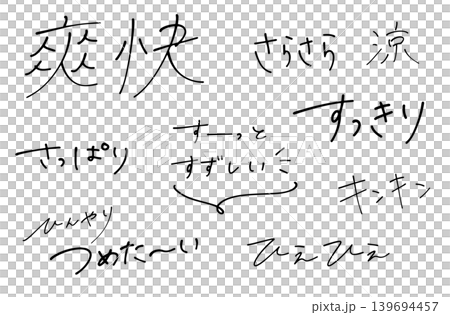 爽快
さらさら
涼
すっきり
さっぱり
すーっと
すずしい
キンキン
ひんやり
つめた〜い
ひえひえ
139694457